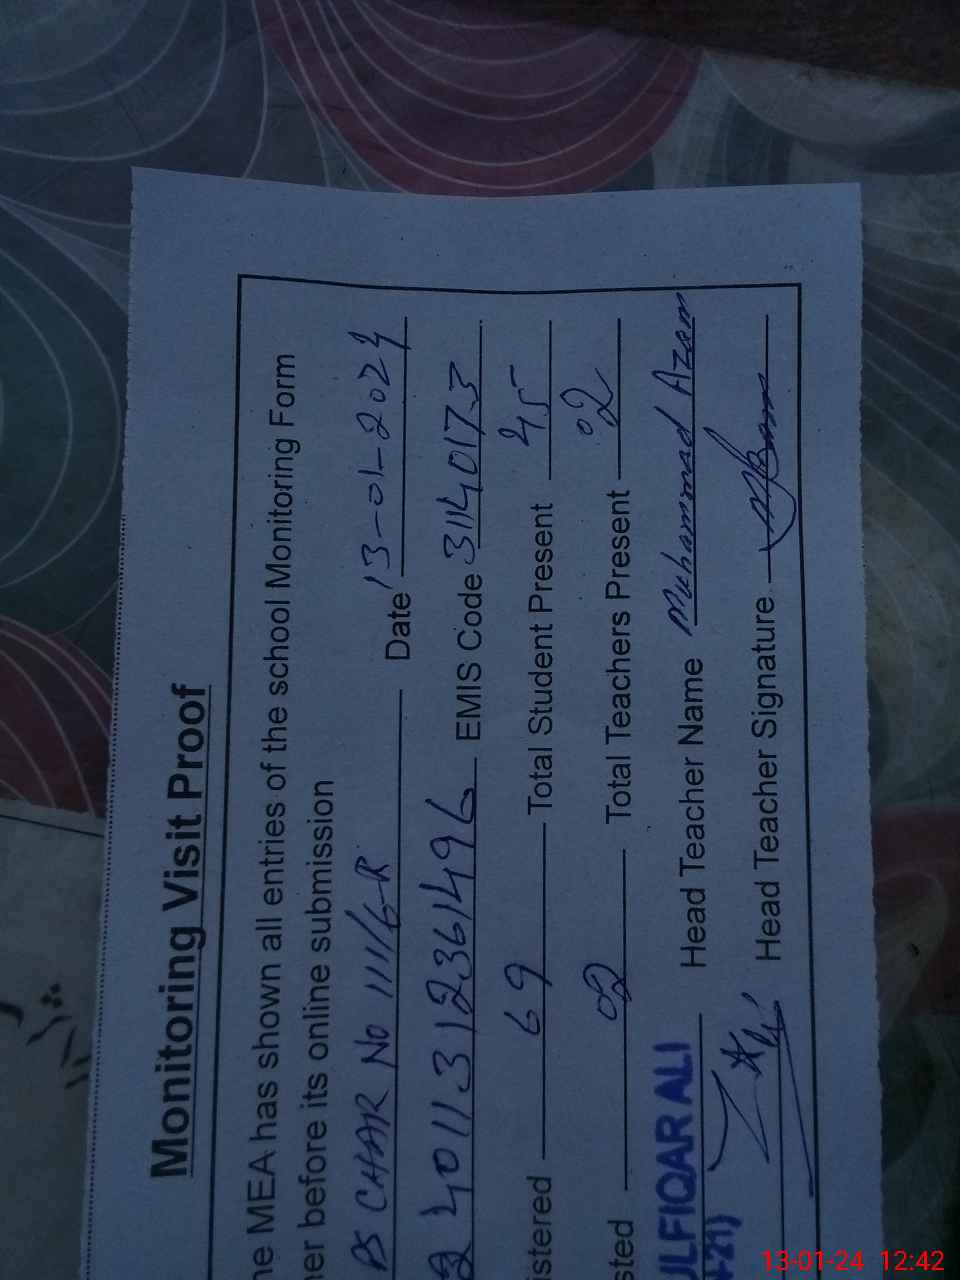 Monitoring Visit Proof
he MEA has shown all entries of the school Monitoring Form
er before its online submission
PS CHAK No 111/6-R Date 13-01-2024
EMIS Code 31140173
istered 69 Total Student Present 45
sted 02 Total Teachers Present 02
ULFIQAR ALI Head Teacher Name Muhammad Azam
21) Head Teacher Signature
13-01-24 12:42